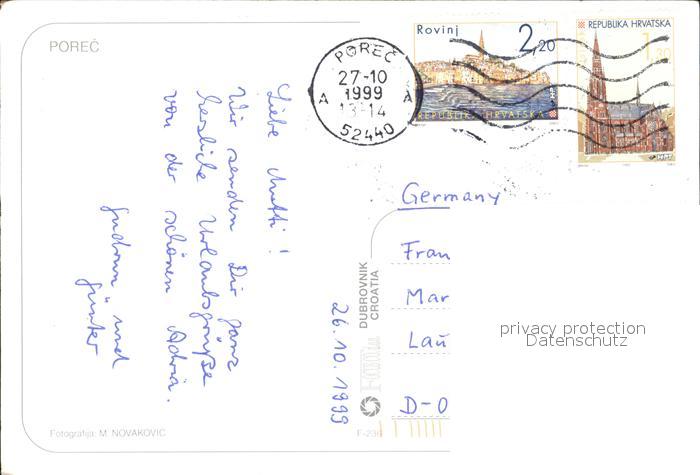 POREČ
Liebe Mutti !
Wir senden Dir ganz
herzliche Urlaubsgrüße
von der schönen Adria.
Gudrun und
Günter
26.10.1999
Fotografija: M. NOVAKOVIC
F-236
DUBROVNIK
CROATIA
POREČ
27-10
1999
A A
13-14
52440
Rovinj
2,20
REPUBLIKA HRVATSKA
REPUBLIKA HRVATSKA
1,30
HPT
Germany
Fran
Mar
Lau
D-0
privacy protection
Datenschutz